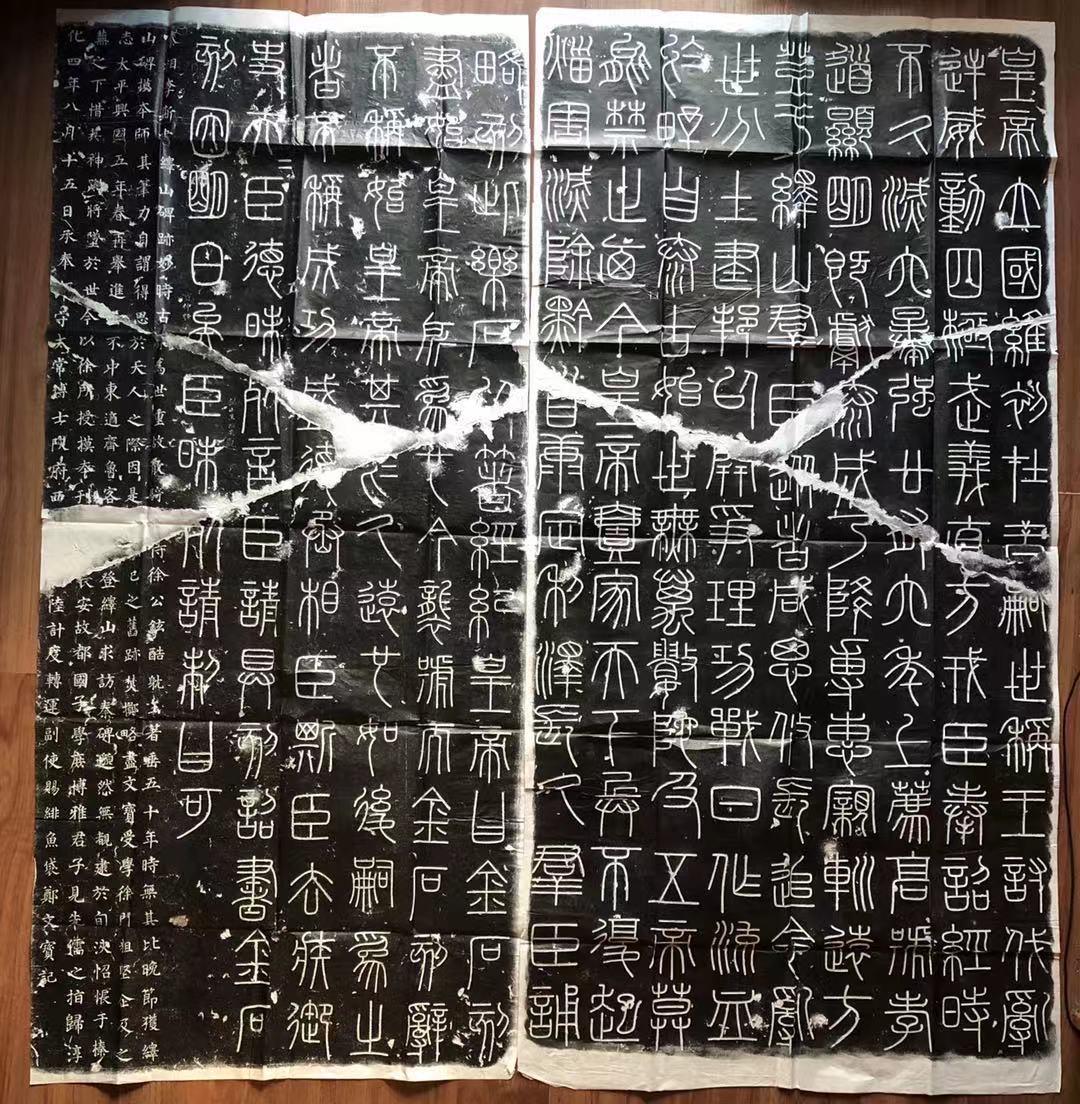 皇帝立國維初在昔嗣世稱王討伐亂
逆威動四極武義直方戎臣奉詔經時
不久滅六暴強廿有六年上薦高號孝
道顯明既獻泰成乃降專惠親巡遠方
登于繹山群臣從者咸思攸長追念亂
世分土建邦以開爭理功戰日作流血
於野自泰古始世無萬數陀及五帝莫
能禁止迺今皇帝壹家天下兵不復起
災害滅除黔首康定利澤長久群臣誦
略刻此樂石以著經紀皇帝曰金石刻
盡始皇帝所為也今襲號而金石刻辭
不稱始皇帝其於久遠也如後嗣為之
者不稱成功盛德丞相臣斯臣去疾御
史夫臣德昧死言臣請具刻詔書金石
刻因明白矣臣昧死請制曰可
相李斯書繹山碑跡妙時古為世重故散騎侍徐公鉉酷躭玉箸垂五十年時無其比晚節獲繹
山碑摸本師其筆力自謂得思於天人之際因是己之舊跡焚擲略盡文寶受學徐門粗堅企及之
志太平興國五年春再舉進不中東適齊魯客登繹山求訪秦碑邈然無覩逮於旬浹怊悵于榛
蕪之下惜其神蹤將墜於世今以徐所授摸本刊長安故都國子學庶博雅君子見先儒之指歸淳
化四年八月十五日承奉守太常博士陝府西陸計度轉運副使賜緋魚袋鄭文寶記